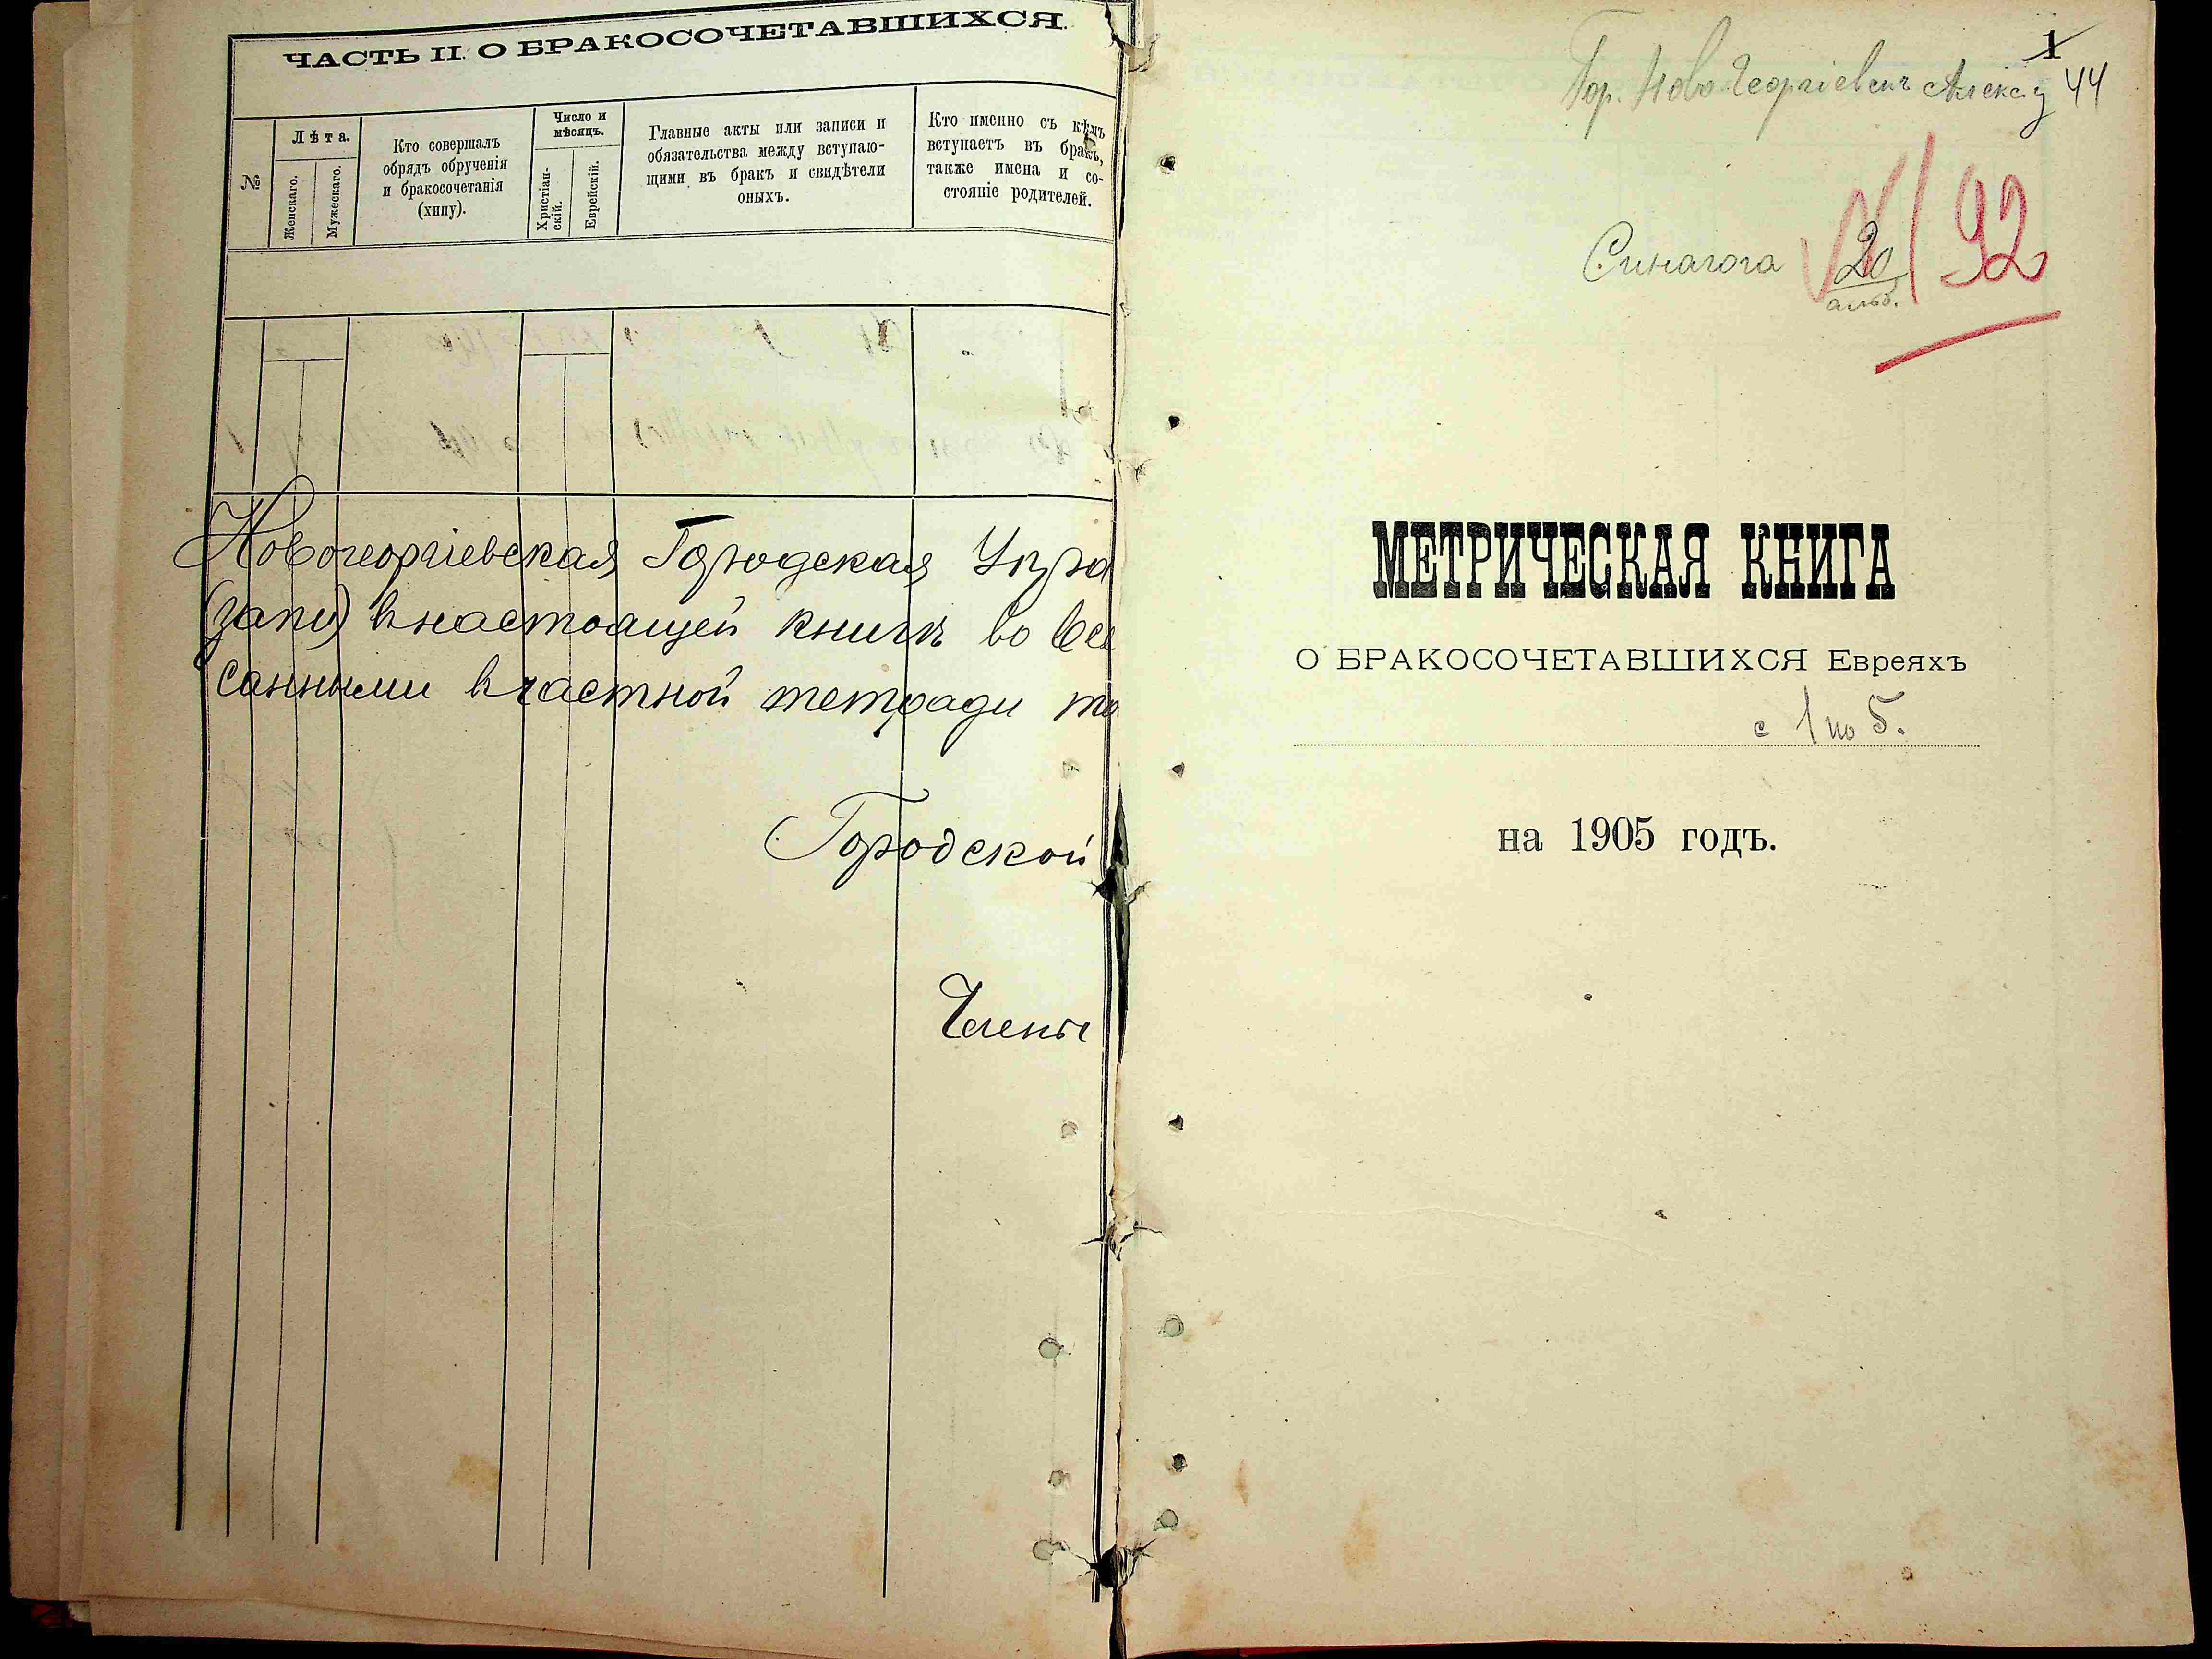 ЧАСТЬ II. О БРАКОСОЧЕТАВШИХСЯ.
№
Лѣта.
Женскаго.
Мужескаго.
Кто совершалъ
обрядъ обрученія
и бракосочетанія
(хипу).
Число и
мѣсяцъ.
Христіан-
скій.
Еврейскій.
Главные акты или записи и
обязательства между вступаю-
щими въ бракъ и свидѣтели
оныхъ.
Кто именно съ кѣмъ
вступаетъ въ бракъ,
также имена и со-
стояніе родителей.
Новогеоргіевская Городская Упра
(запи) в настоящей книгѣ во все
санными в частной тетради то
Городской
Члены
1
Гор. Ново-Георгіевскъ Алекс. у 44
Синагога 20 № 92
альб.
МЕТРИЧЕСКАЯ КНИГА
О БРАКОСОЧЕТАВШИХСЯ Евреяхъ
с 1 по 5.
на 1905 годъ.